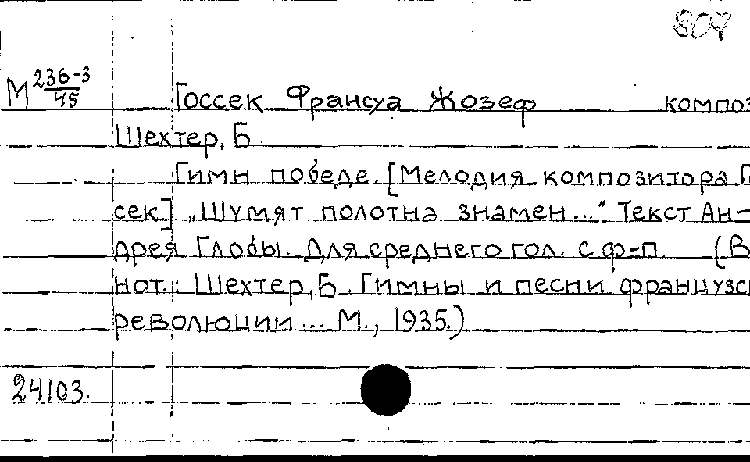 807
М 236-3/45
Госсек Франсуа Жозеф композ
Шехтер, Б
Гимн победе. [Мелодия композитора Г
сек] „Шумят полотна знамен..." Текст Ан-
дрея Глобы. Для среднего гол. с ф-п (В
нот.: Шехтер, Б. Гимны и песни французс
революции... М., 1935.)
24103.